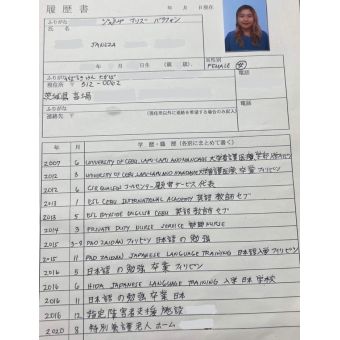 履歴書
年 月 日現在
ふりがな
氏 名
JANEZA
年 月 日生 (満 歳)
男性別
FEMALE 女
ふりがな
電話
現住所 〒 312-0062
茨城県
ふりがな
電話
連絡先 〒
(現住所以外に連絡を希望する場合のみ記入)
年 月 学歴・職歴 (各別にまとめて書く)
2007 6 UNIVERSITY OF CEBU LAPU-LAPU AND MANDAUE 大学看護医療学部
2012 3 UNIVERSITY OF CEBU LAPU-LAPU AND MANDAUE 大学看護医療 卒業 フィリピン
2012 6 CSR コールセンター 顧客サービス代表
2013 1 ESL CEBU INTERNATIONAL ACADEMY 英語 教師 セブ
2013 5 ESL BAYSIDE ENGLISH CEBU 英語 教師 セブ
2014 3 PRIVATE DUTY NURSE SERVICE NURSE
2015 3-9 PAO ZAIDAN フィリピン 日本語の勉強
2015 11 PAO ZAIDAN JAPANESE LANGUAGE TRAINING 日本語入学 フィリピン
2016 5 日本語の勉強 卒業 フィリピン
2016 6 HIDA JAPANESE LANGUAGE TRAINING 入学 日本 学校
2016 11 日本語の勉強 卒業 日本
2016 12 指定障害者支援施設
2020 8 特別養護老人ホーム